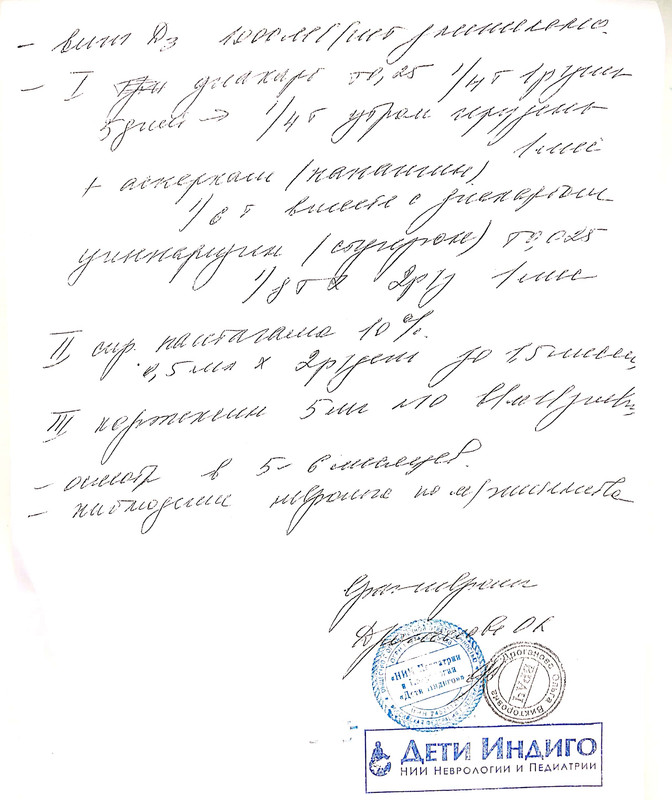 - вит Д3 1000 МЕ/сут длительно.
- I диакарб т 0,25 1/4 т 1 р/день
5 дней → 1/4 т утром через день
1 мес
+ аспаркам (панангин)
1/6 т вместе с диакарбом
циннаризин (стугерон) т 0,025
1/8 т х 2 р/д 1 мес
II сир. пантогама 10%.
0,5 мл х 2 р/день до 1,5 месяц
III кортексин 5 мг №10 в/м
- осмотр в 5-6 месяцев.
- наблюдение невролога по м/жительства
Врач-невролог
О В
«НИИ Педиатрии
и Неврологии
«Дети Индиго»
Ольга Викторовна
ВРАЧ
ДЕТИ ИНДИГО
НИИ НЕВРОЛОГИИ И ПЕДИАТРИИ